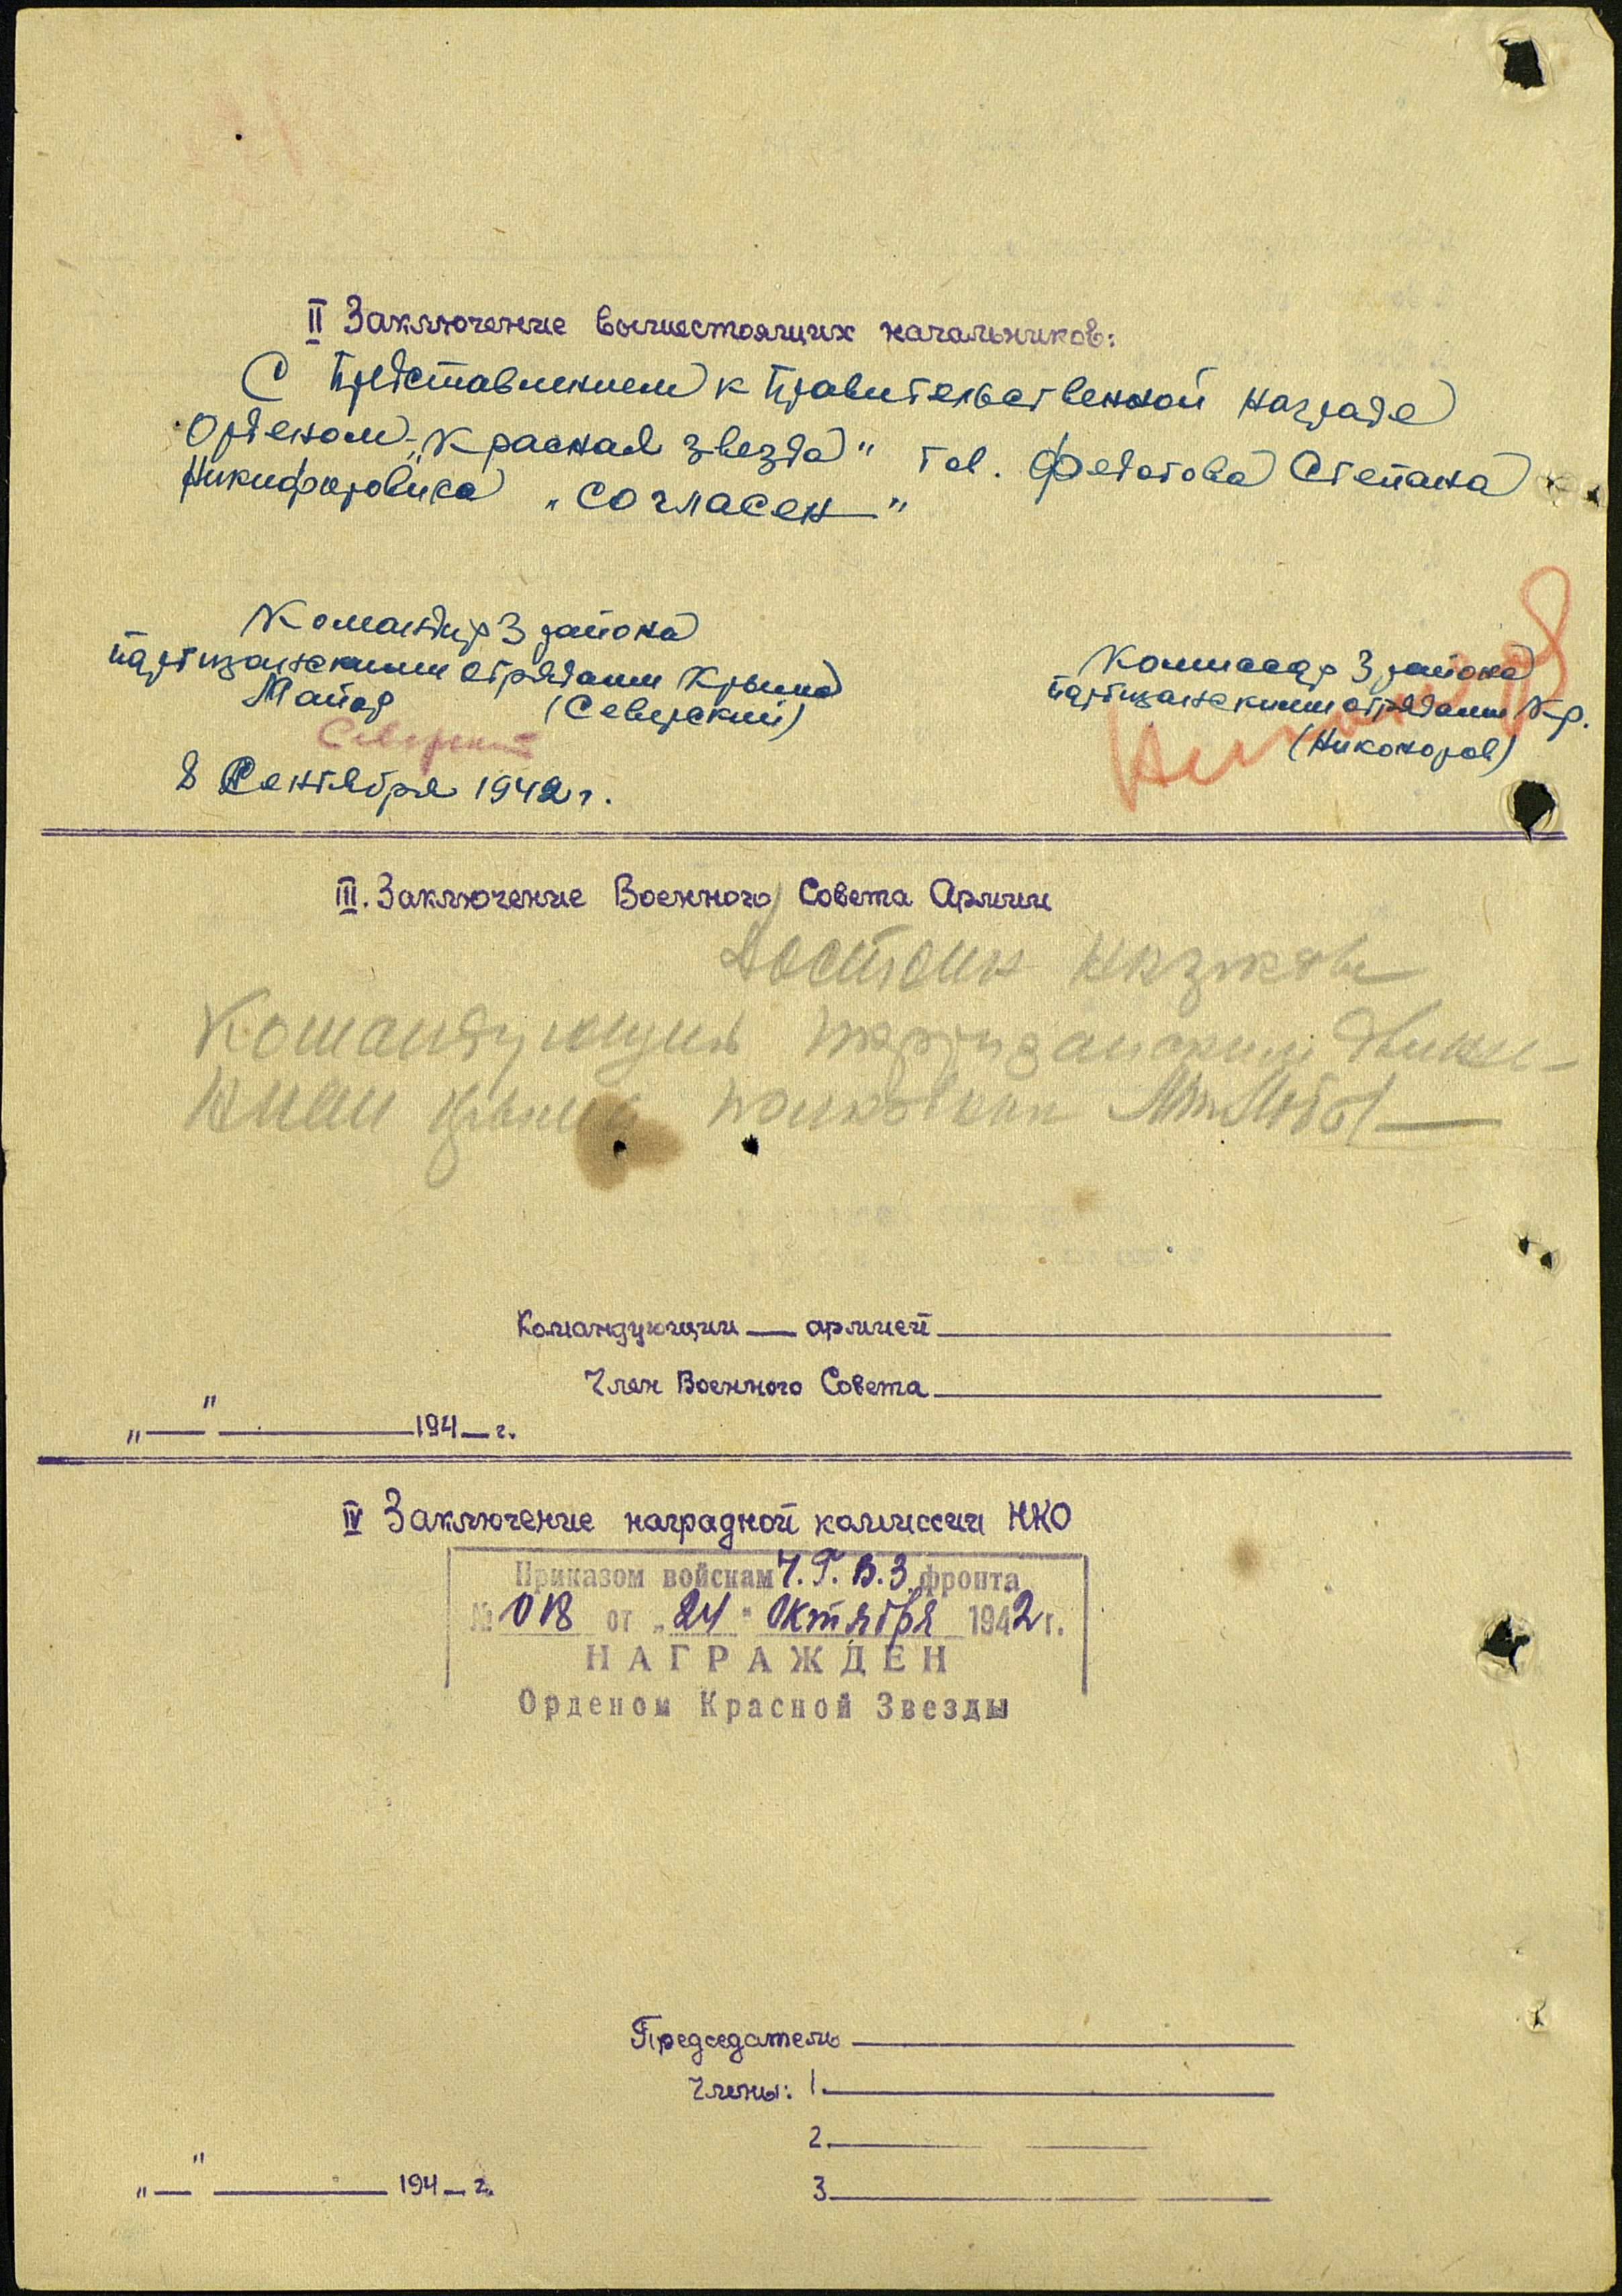 II Заключение вышестоящих начальников:
С представлением к правительственной награде
Орденом „Красная звезда" тов. Федотова Степана
Никифоровича „согласен"
Командир 3 района
партизанскими отрядами Крыма
Майор (Северский)
Северский
8 Сентября 1942 г.
Комиссар 3 района
партизанскими отрядами Кр.
(Никоноров)
Никоноров
III. Заключение Военного Совета Армии
Достоин награды
Командующий партизанским движе-
нием Крыма полковник
Командующий — армией
Член Военного Совета
„—" 194_ г.
IV Заключение наградной комиссии НКО
Приказом войскам Ч.Г.В.З. фронта
№ 018 от „24" Октября 1942 г.
НАГРАЖДЕН
Орденом Красной Звезды
Председатель
Члены: 1.
2.
3
„—" 194_ г.